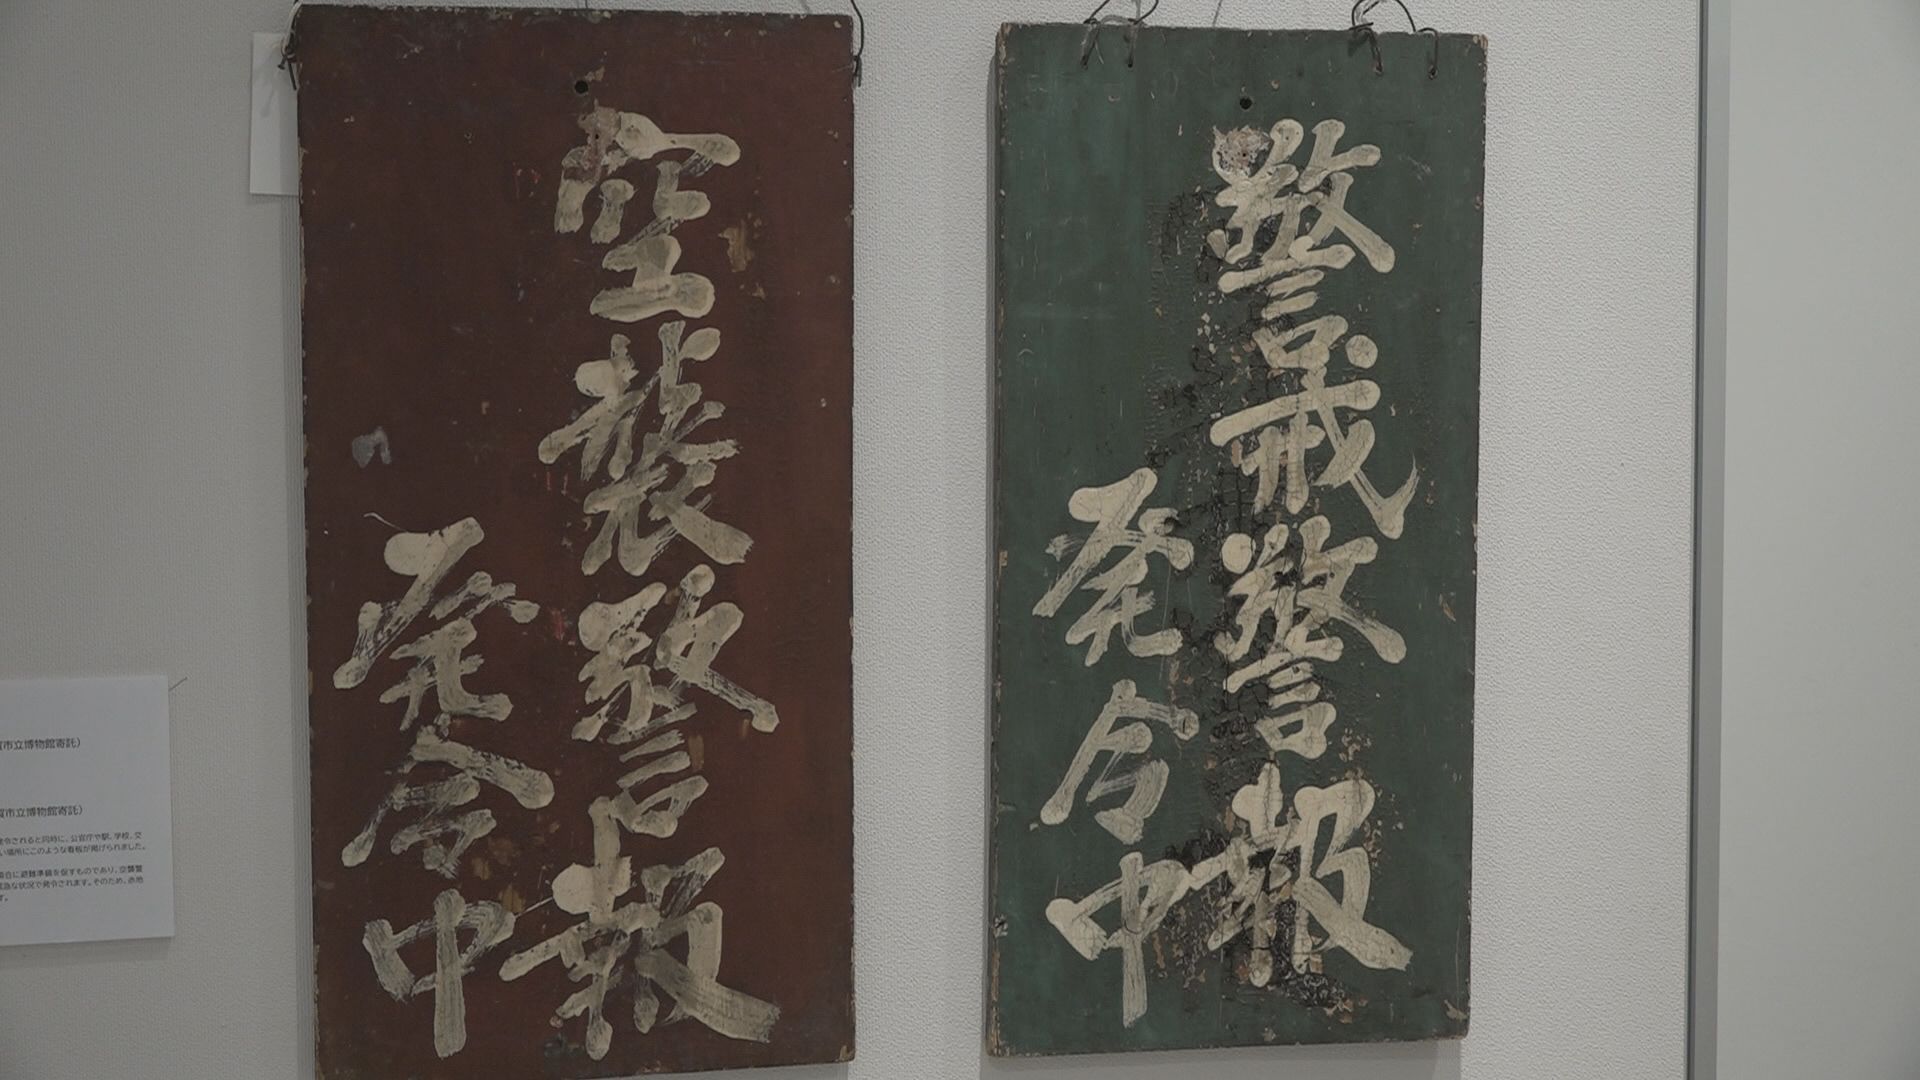 警戒警報
発令中
空襲警報
発令中
市立博物館寄託）
市立博物館寄託）
令されると同時に、公官庁や駅、学校、交
い場所にこのような看板が掲げられました。
場合に避難準備を促すものであり、空襲警
急な状況で発令されます。そのため、赤地
す。